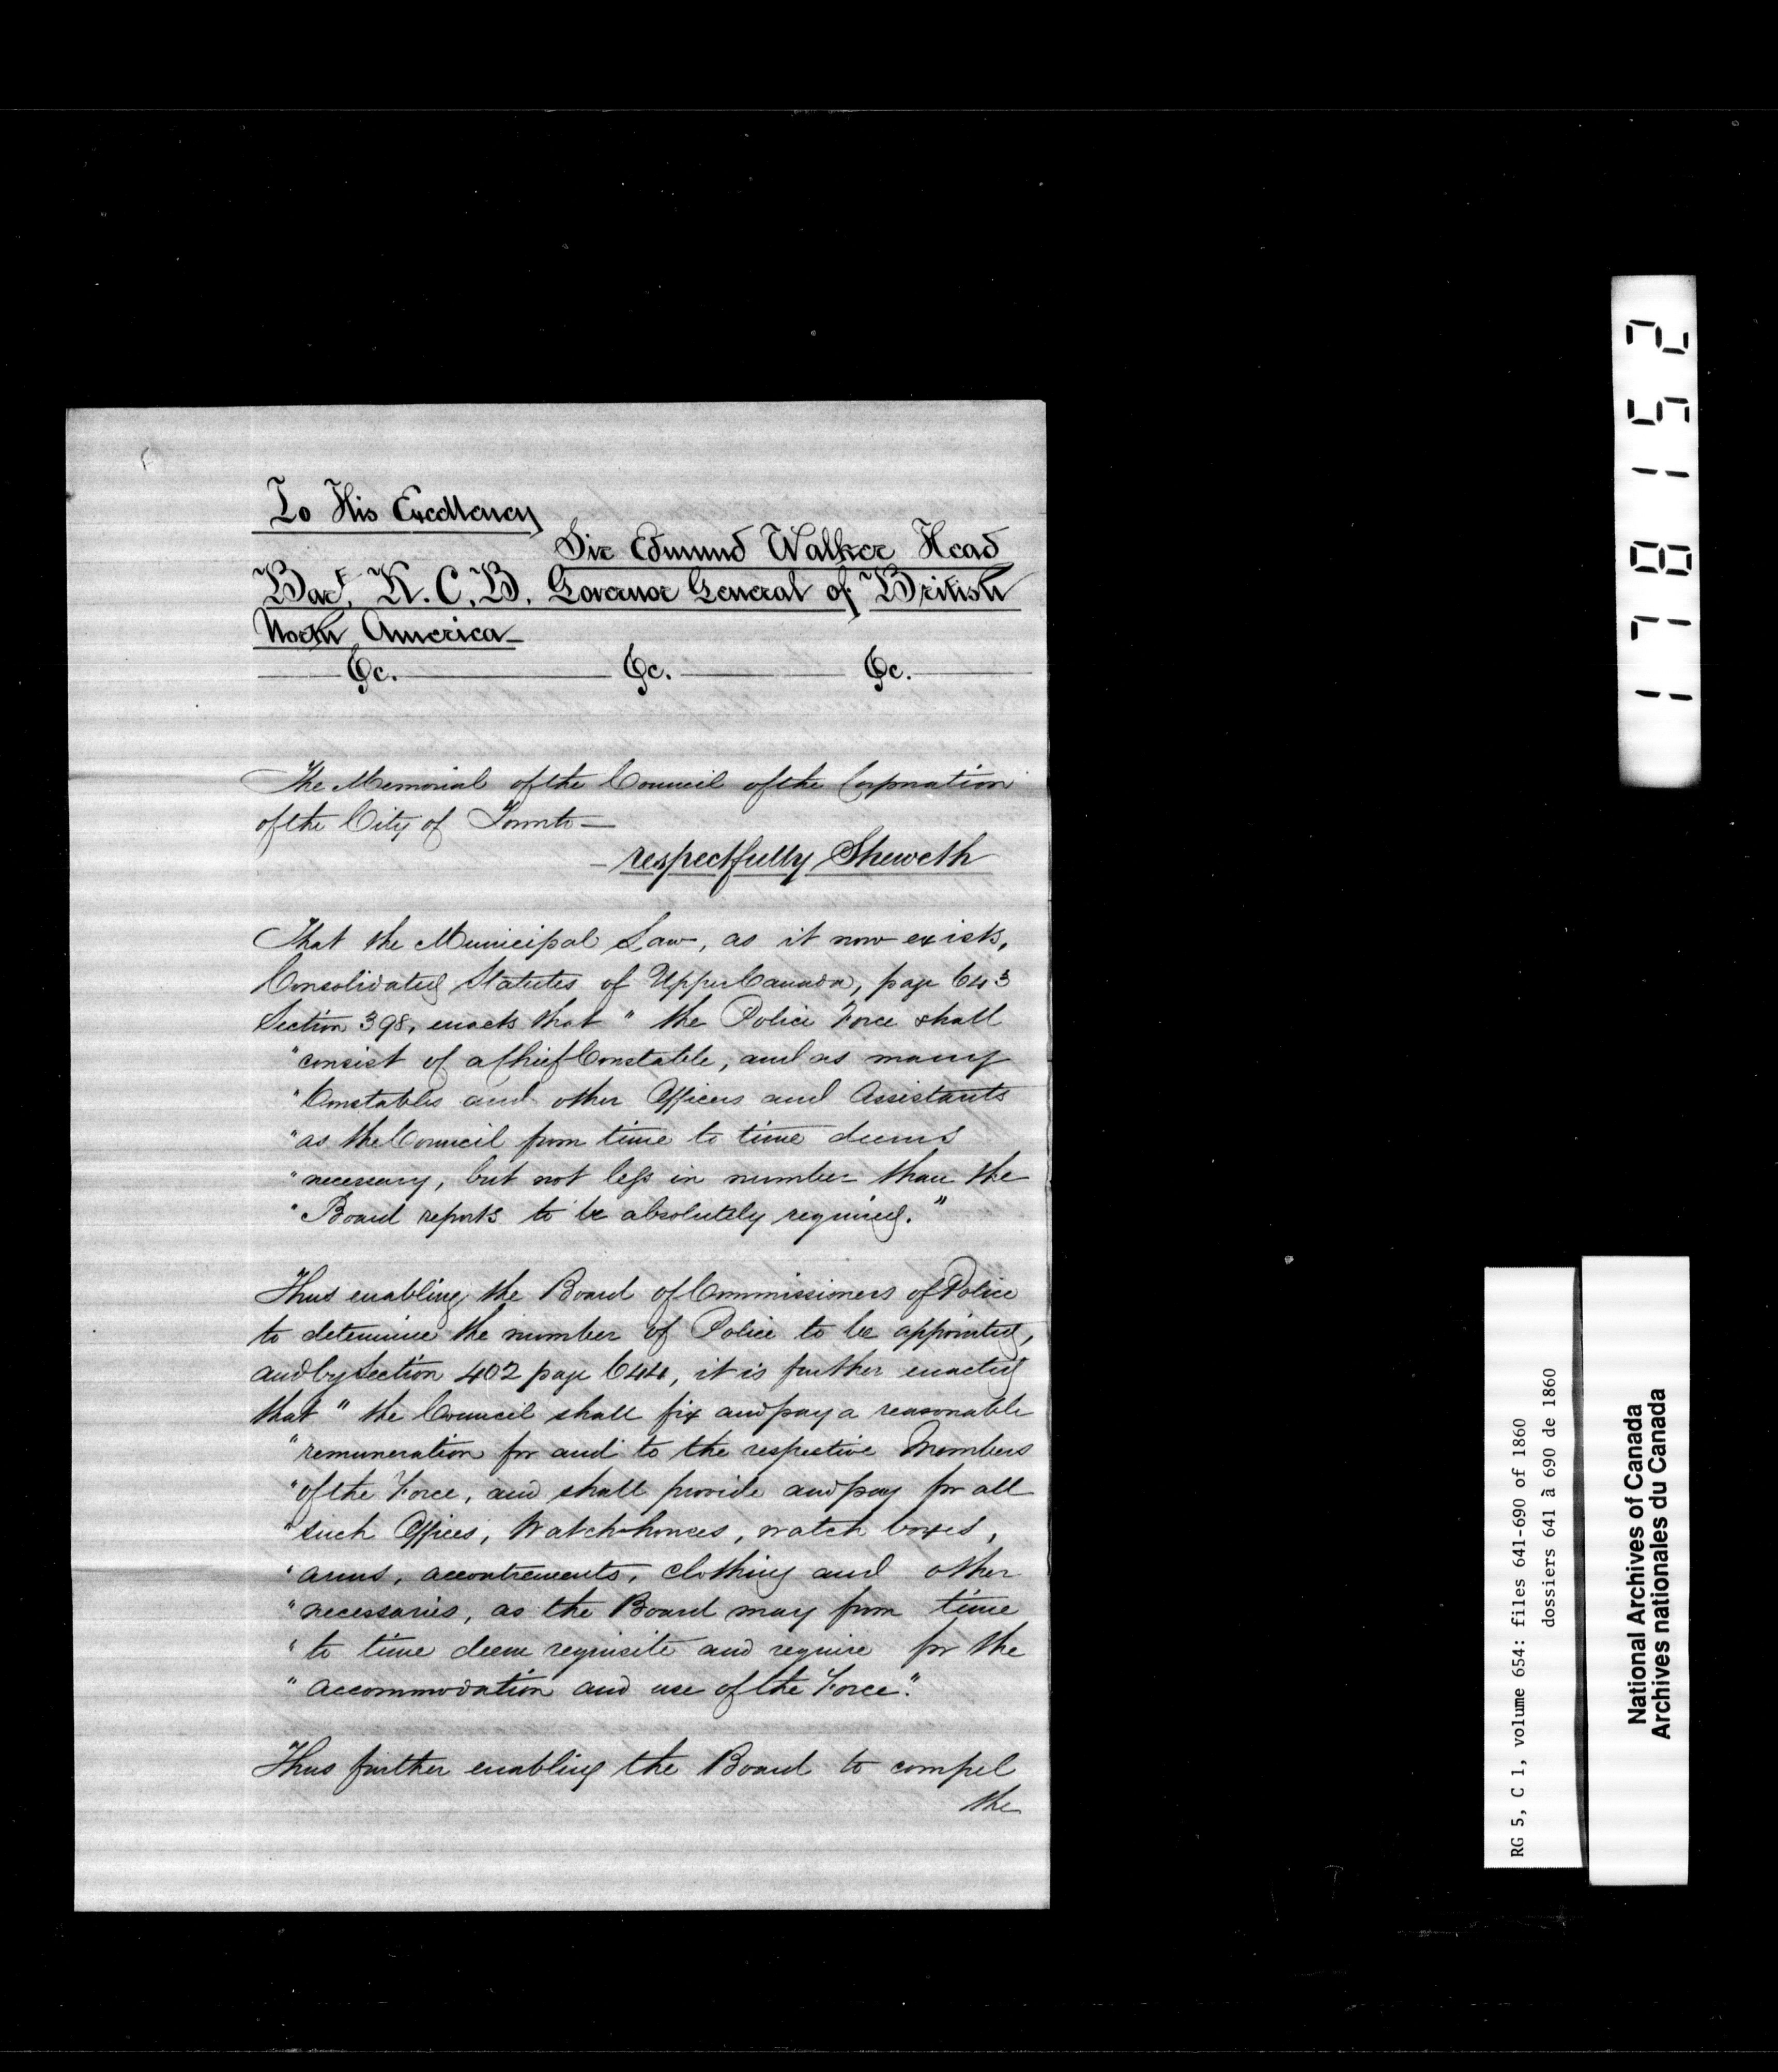 To His Excellency
Sir Edmund Walker Head
Bart. K.C.B. Governor General of British
North America
&c. &c. &c.
The Memorial of the Council of the Corporation
of the City of Toronto —
— respectfully Sheweth
That the Municipal Law, as it now exists,
Consolidated Statutes of Upper Canada, page 643
Section 398, enacts that " the Police Force shall
" consist of a Chief Constable, and as many
" Constables and other Officers and Assistants
" as the Council from time to time deems
" necessary, but not less in number than the
" Board reports to be absolutely required."
Thus enabling the Board of Commissioners of Police
to determine the number of Police to be appointed,
and by Section 402 page 644, it is further enacted
that " the Council shall fix and pay a reasonable
" remuneration for and to the respective Members
" of the Force, and shall provide and pay for all
" such Offices, Watch-houses, watch boxes,
" arms, accoutrements, clothing and other
" necessaries, as the Board may from time
" to time deem requisite and require for the
" accommodation and use of the Force".
Thus further enabling the Board to compel
the
178152
RG 5, C 1, volume 654: files 641-690 of 1860
dossiers 641 à 690 de 1860
National Archives of Canada
Archives nationales du Canada